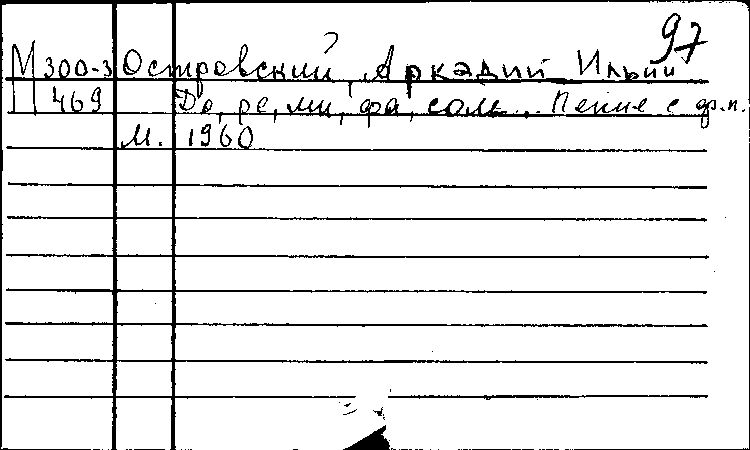 97
М 300-3 Островский, Аркадий Ильич
469 До, ре, ми, фа, соль... Пение с ф.п.
М. 1960